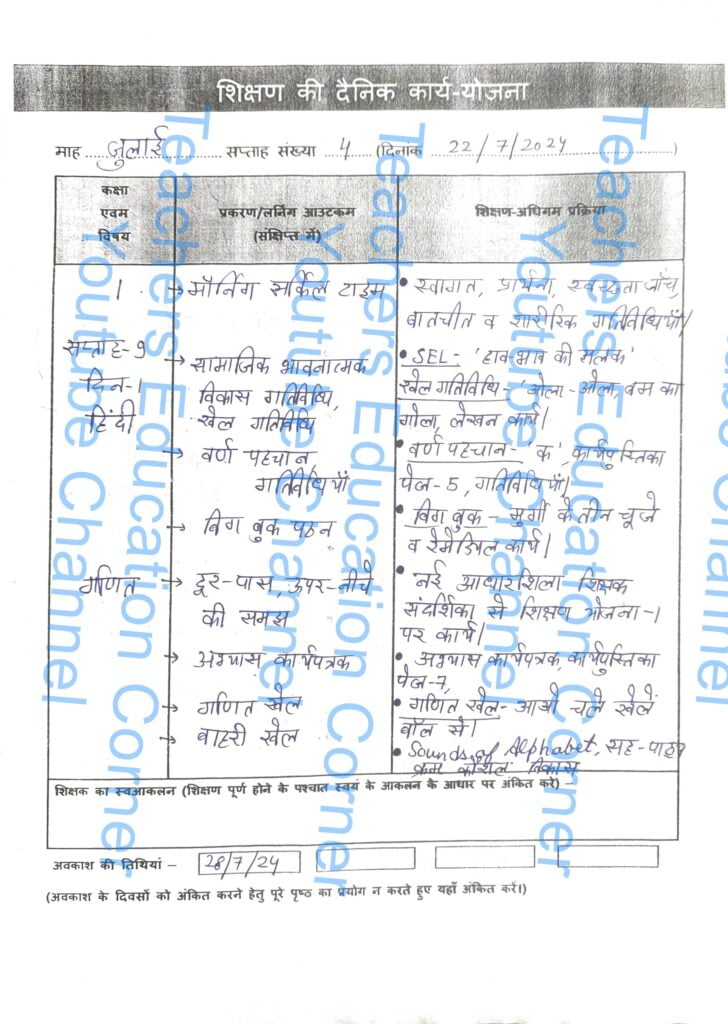 शिक्षण की दैनिक कार्य-योजना
माह जुलाई सप्ताह संख्या 4 (दिनाक 22/7/2024)
कक्षा एवम विषय
प्रकरण/लर्निंग आउटकम (संक्षिप्त में)
शिक्षण-अधिगम प्रक्रिया
1
→ मॉर्निंग सर्किल टाइम
• स्वागत, प्रार्थना, स्वच्छता जाँच,
बातचीत व शारीरिक गतिविधियाँ।
सप्ताह-9
दिन-1
हिंदी
→ सामाजिक भावनात्मक
विकास गतिविधि,
खेल गतिविधि
• SEL- 'हाव-भाव की झलक'
खेल गतिविधि- 'ओला-ओला, बम का
गोला, लेखन कार्य।
→ वर्ण पहचान,
गतिविधियाँ
• वर्ण पहचान- 'क', कार्यपुस्तिका
पेज-5, गतिविधियाँ,
→ बिग बुक पठन
• बिग बुक- मुर्गी के तीन चूजे
व रेमेडियल कार्य।
गणित
→ दूर-पास, ऊपर-नीचे
की समझ
• नई आधारशिला शिक्षक
संदर्शिका से शिक्षण योजना-1
पर कार्य।
→ अभ्यास कार्यपत्रक
• अभ्यास कार्यपत्रक, कार्यपुस्तिका
पेज-7,
→ गणित खेल
• गणित खेल- आओ चले खेलें
बॉल से।
→ बाहरी खेल
• Sounds of Alphabet, सह-पाठ्य
क्रम कौशल विकास
शिक्षक का स्वआकलन (शिक्षण पूर्ण होने के पश्चात स्वयं के आकलन के आधार पर अंकित करे) –
अवकाश की तिथियां – 28/7/24
(अवकाश के दिवसों को अंकित करने हेतु पूरे पृष्ठ का प्रयोग न करते हुए यहाँ अंकित करें।)
Teachers Education Corner
Youtube Channel
Teachers Education Corner
Youtube Channel
Teachers Education Corner
Youtube Channel